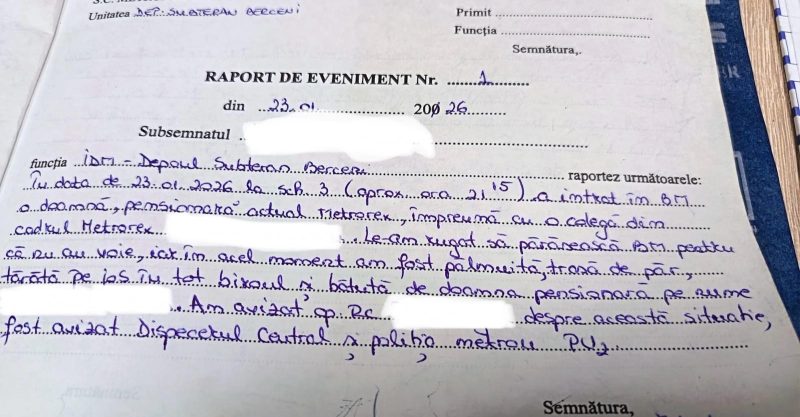 Unitatea DEP. SUBTERAN BERCENI
Primit
Funcția
Semnătura,.
RAPORT DE EVENIMENT Nr. 1
din 23.01 2026
Subsemnatul
funcția IDM - Depoul Subteran Berceni raportez următoarele:
În data de 23.01.2026 la sch. 3 (aprox. ora 21 15) a intrat în BM
o doamnă, pensionară actual Metrorex, împreună cu o colegă din
cadrul Metrorex. Le-am rugat să părăsească BM pentru
că nu au voie, iar în acel moment am fost pălmuită, trasă de păr,
târâtă pe jos în tot biroul și bătută de doamna pensionară pe nume
. Am avizat op. Rc despre această situație,
fost avizat Dispecerul Central și poliția metrou PU2
Semnătura,